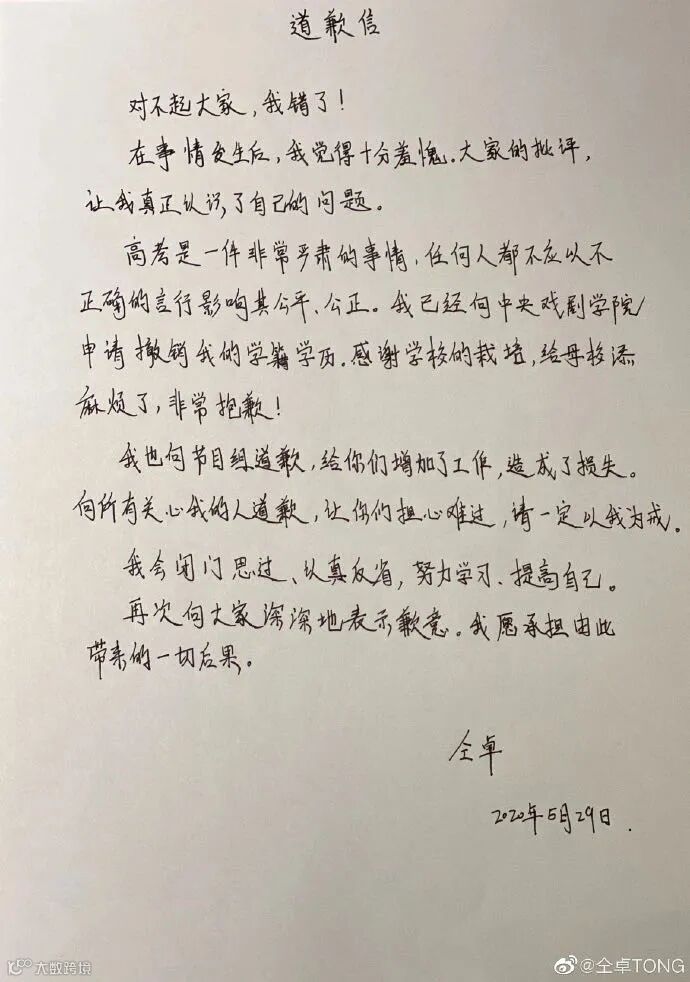 道歉信
对不起大家，我错了！
在事情发生后，我觉得十分羞愧.大家的批评，
让我真正认识了自己的问题。
高考是一件非常严肃的事情，任何人都不应以不
正确的言行影响其公平、公正。我已经向中央戏剧学院
申请撤销我的学籍学历.感谢学校的栽培，给母校添
麻烦了，非常抱歉！
我也向节目组道歉，给你们增加了工作，造成了损失。
向所有关心我的人道歉，让你们担心难过，请一定以我为戒。
我会闭门思过、认真反省，努力学习、提高自己。
再次向大家深深地表示歉意。我愿承担由此
带来的一切后果。
仝卓
2020年5月29日.
大数跨境
@仝卓TONG